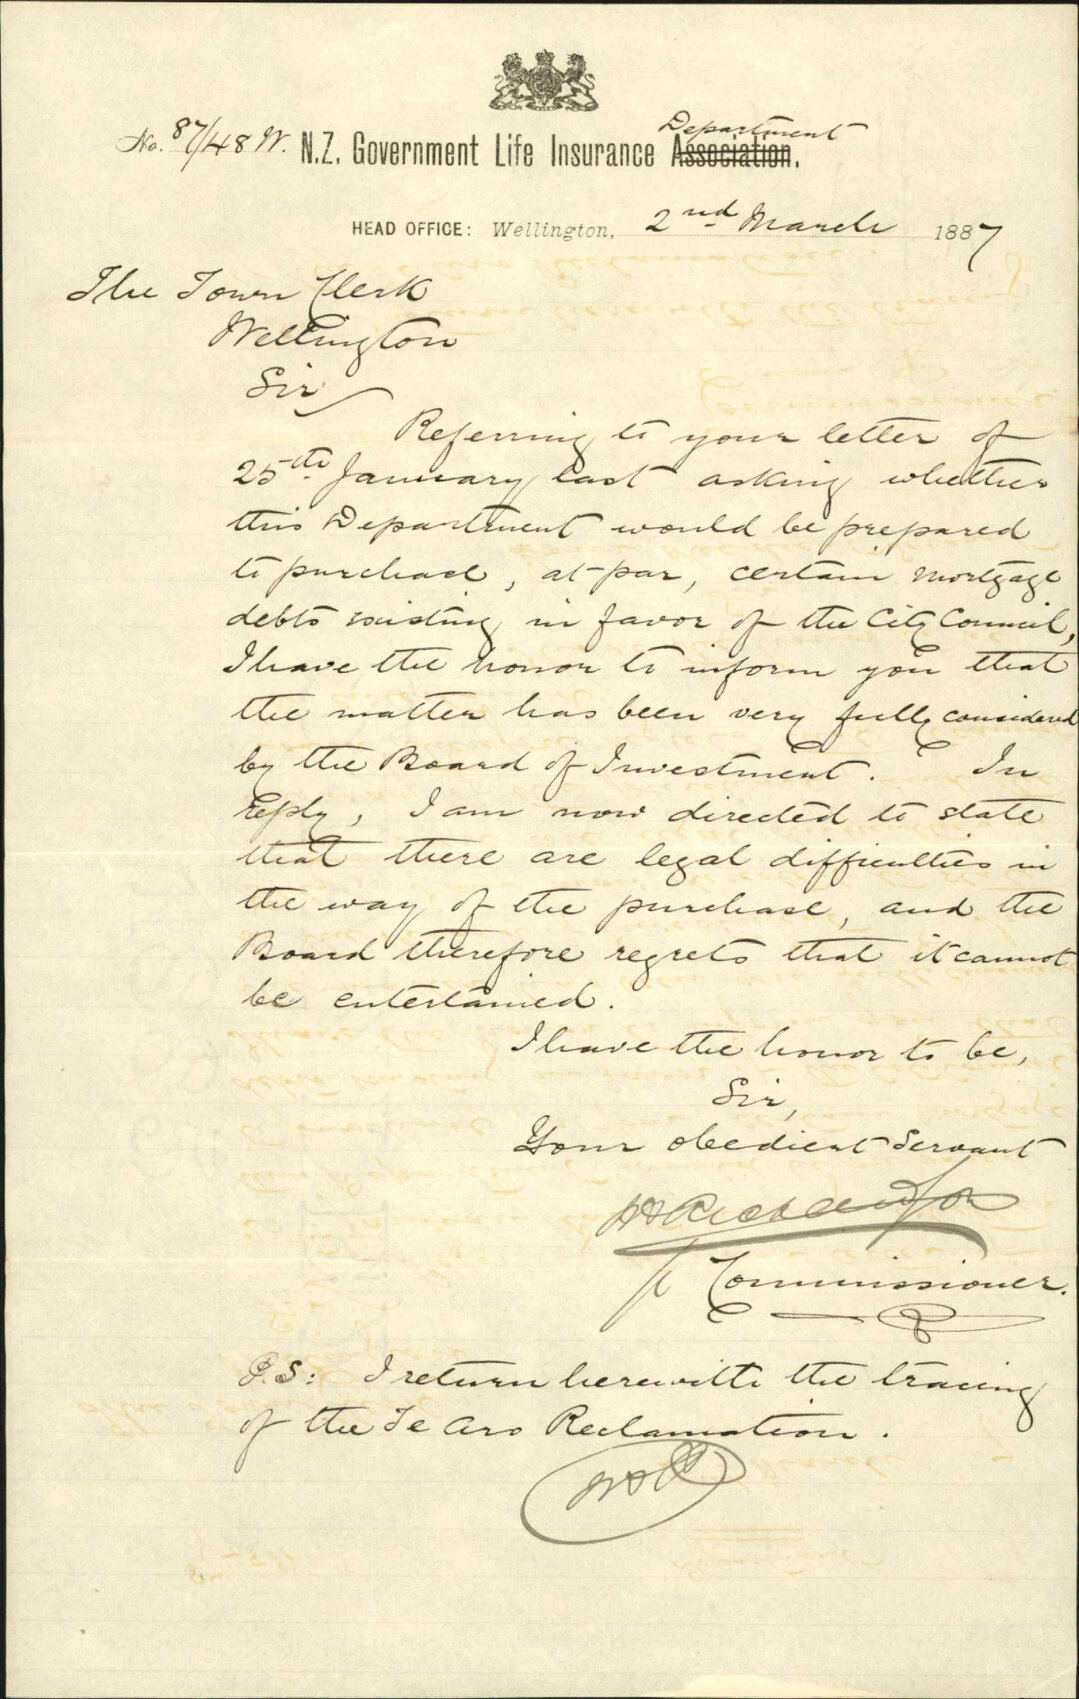 No. 87/48 W.
Department
N.Z. Government Life Insurance Association.
HEAD OFFICE: Wellington, 2nd March 1887
The Town Clerk
Wellington
Sir
Referring to your letter of
25th January last asking whether
this Department would be prepared
to purchase, at par, certain mortgage
debts existing in favor of the City Council,
I have the honor to inform you that
the matter has been very fully considered
by the Board of Investment. In
reply, I am now directed to state
that there are legal difficulties in
the way of the purchase, and the
Board therefore regrets that it cannot
be entertained.
I have the honor to be,
Sir,
Your obedient Servant
Commissioner.
P.S: I return herewith the tracing
of the Te Aro Reclamation.